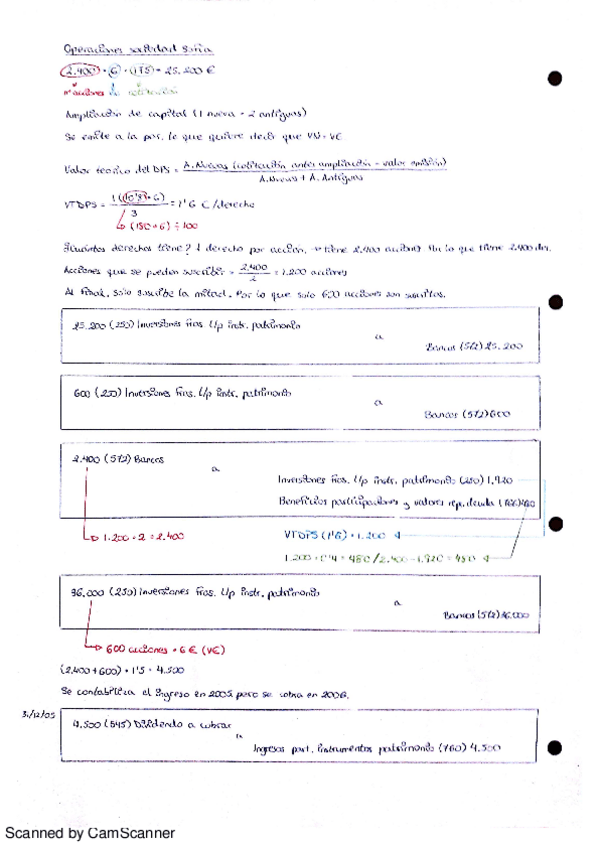 Operaciones sociedad Soria
2.400 · 6 · 175 = 25.200 €
nº acciones
Ampliación de capital (1 nueva - 2 antiguas)
Se emite a la par, lo que quiere decir que VN = VE
Valor teórico del DPS = A.Nuevas (cotización antes ampliación - valor emisión)
A.Nuevas + A. Antiguas
VTDPS = 1 (10'8 - 6) = 1'6 €/derecho
3
(180 · 6) ÷ 100
¿Cuántos derechos tiene? 1 derecho por acción, → tiene 2.400 acciones Por lo que tiene 2.400 der.
Acciones que se pueden suscribir = 2.400 = 1.200 acciones
2
Al final, solo suscribe la mitad. Por lo que solo 600 acciones son suscritas.
25.200 (250) Inversiones fras. l/p instr. patrimonio
a
Bancos (572) 25.200
600 (250) Inversiones fras. l/p instr. patrimonio
a
Bancos (572) 600
2.400 (572) Bancos
a
Inversiones fras. l/p instr. patrimonio (250) 1.920
Beneficios participaciones y valores rep. deuda (766) 480
1.200 · 2 = 2.400
VTDPS (1'6) · 1.200
1.200 · 0'4 = 480 / 2.400 - 1.920 = 480
36.000 (250) Inversiones fras. l/p instr. patrimonio
a
Bancos (572) 36.000
600 acciones · 6 € (VE)
(2.400 + 600) · 1'5 = 4.500
Se contabiliza el ingreso en 2005 pero se cobra en 2006.
31/12/05
4.500 (545) Dividendo a cobrar
a
Ingresos part. instrumentos patrimonio (760) 4.500
Scanned by CamScanner